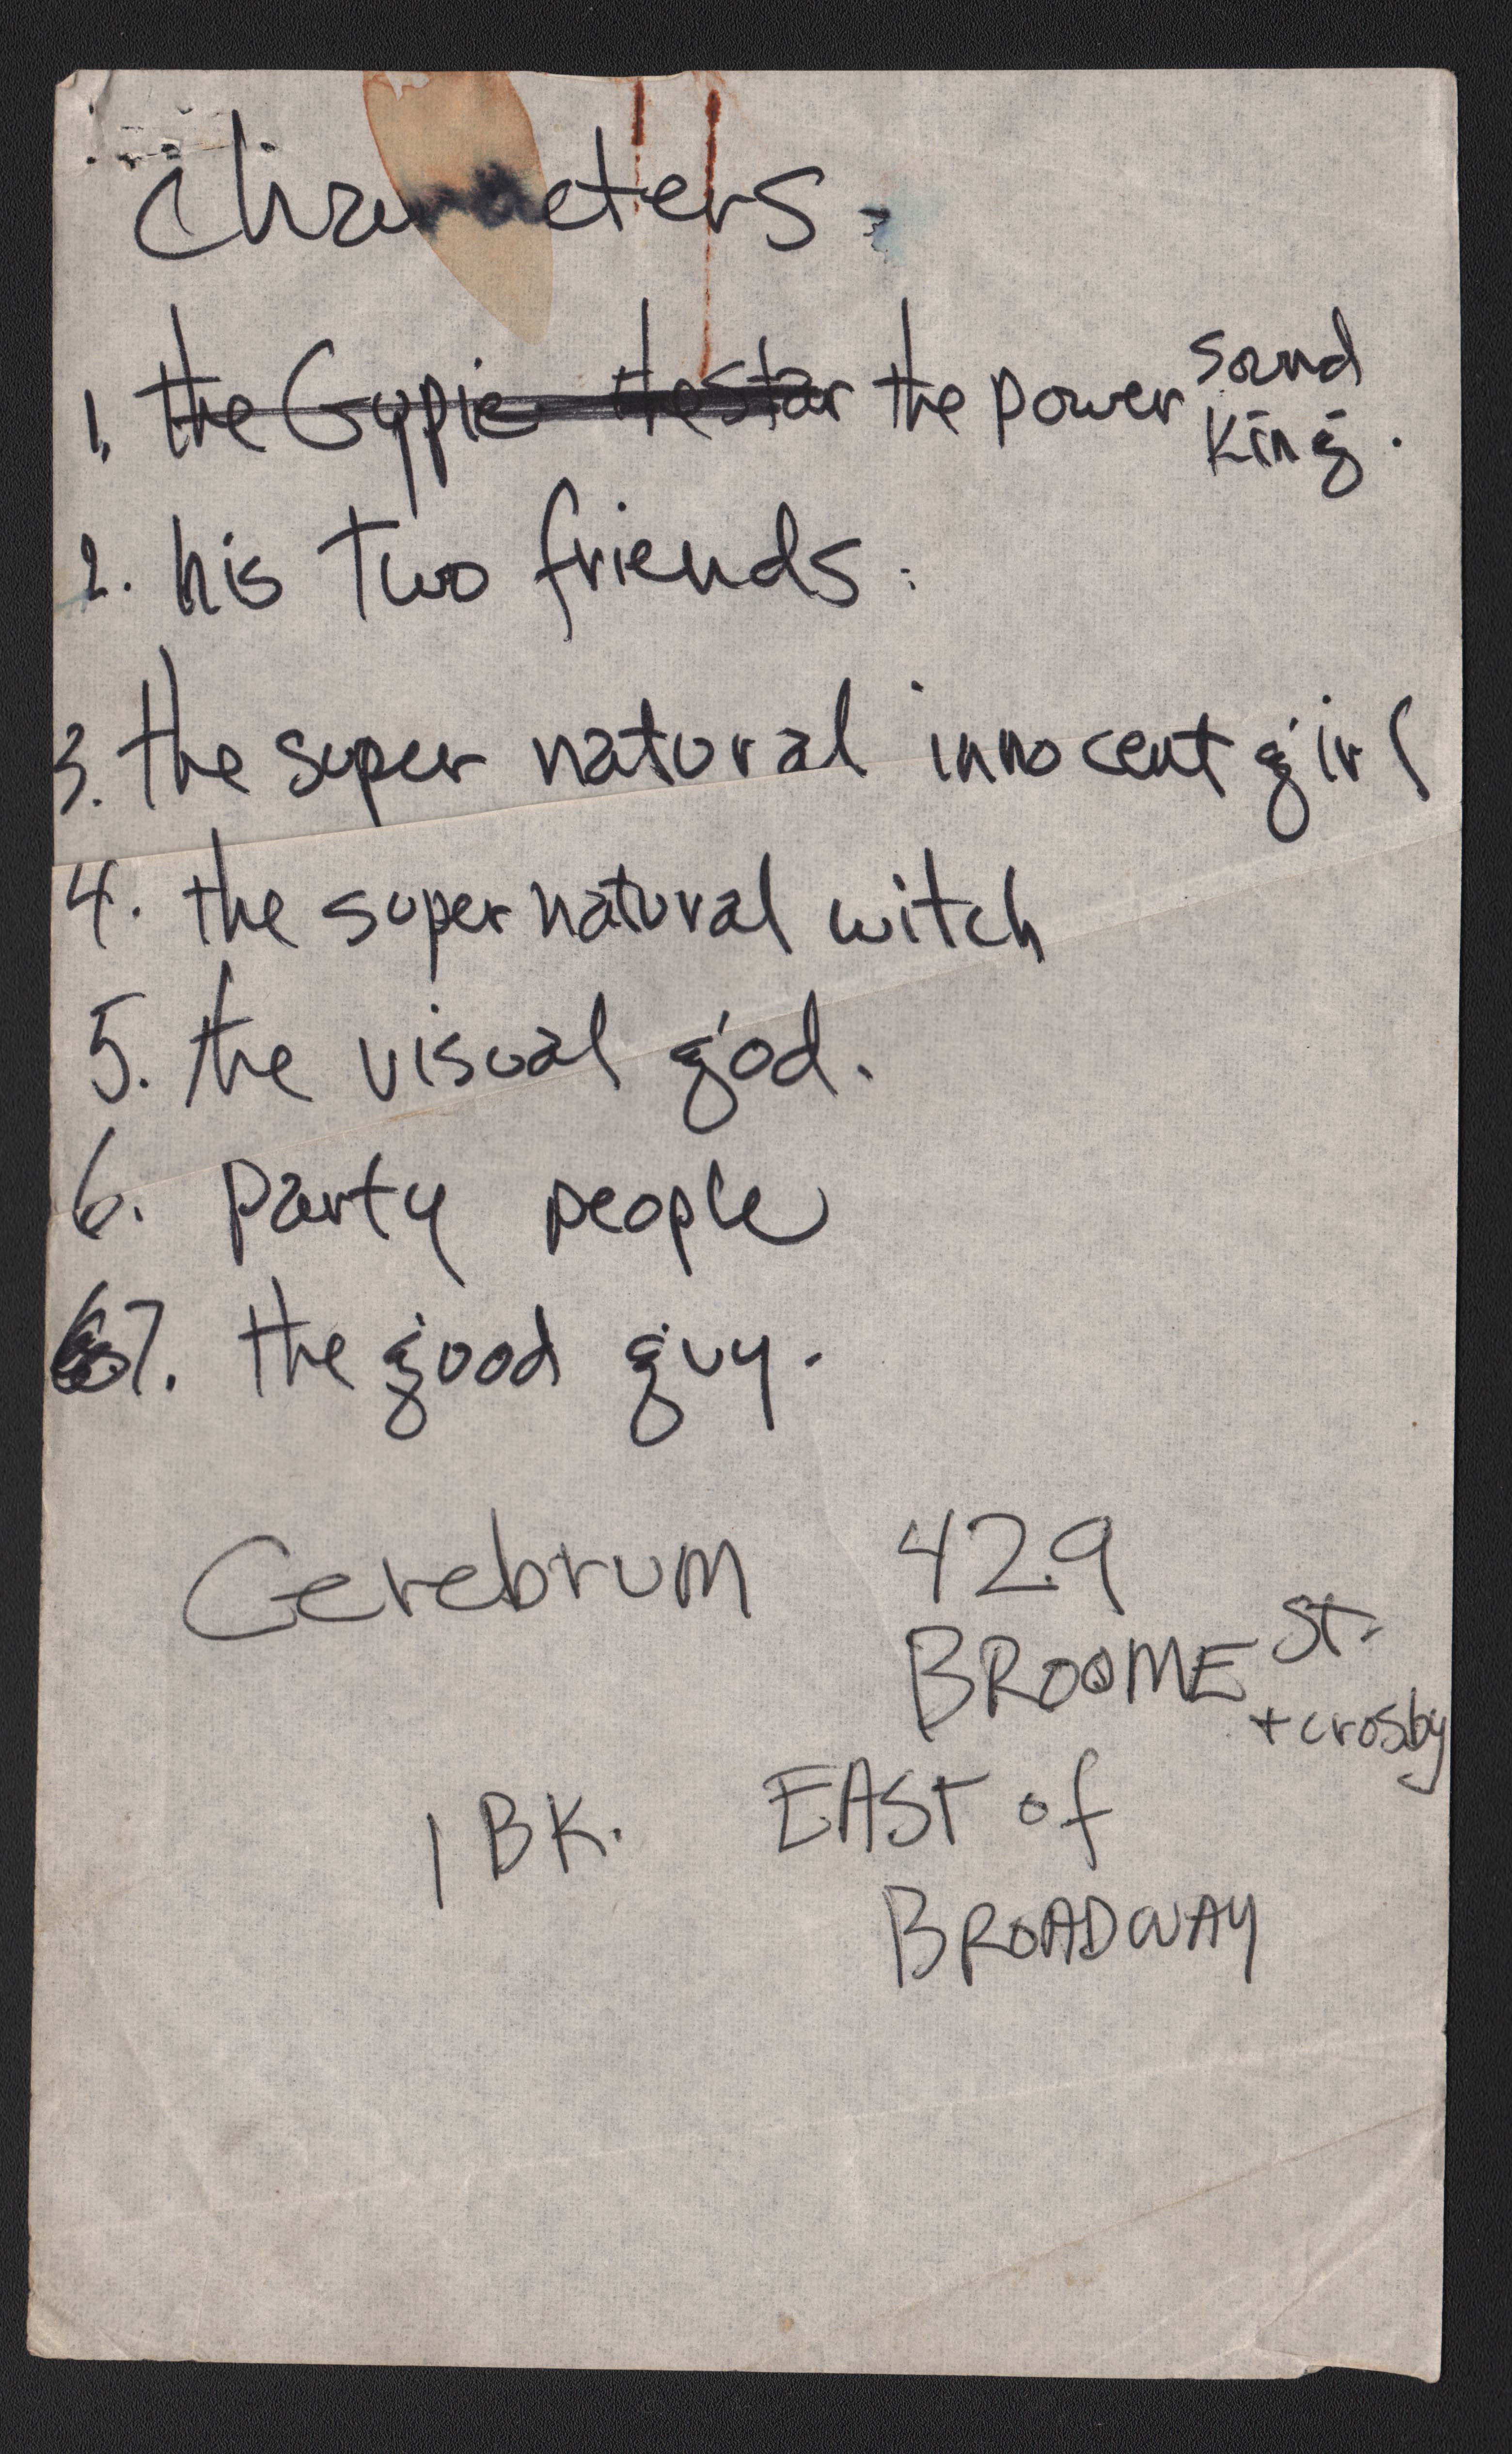 Characters.
1. the Gyppie the star the power sound King.
2. his two friends.
3. the super natural innocent girl
4. the supernatural witch
5. the visual god.
6. Party people
67. the good guy.
Cerebrum 429
BROOME St.
+ crosby
1 BK. EAST of
BROADWAY